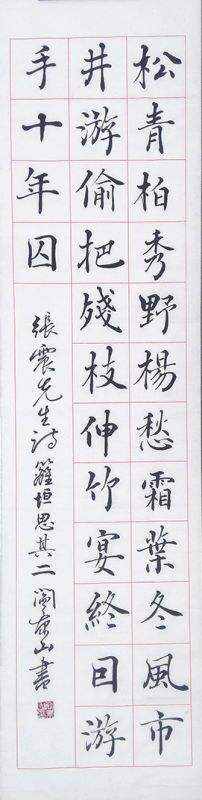 松青柏秀野楊愁霜葉冬風市
井游偷把殘枝伸竹宴終回游
手十年囚
張震先生詩籬垣思其二山書